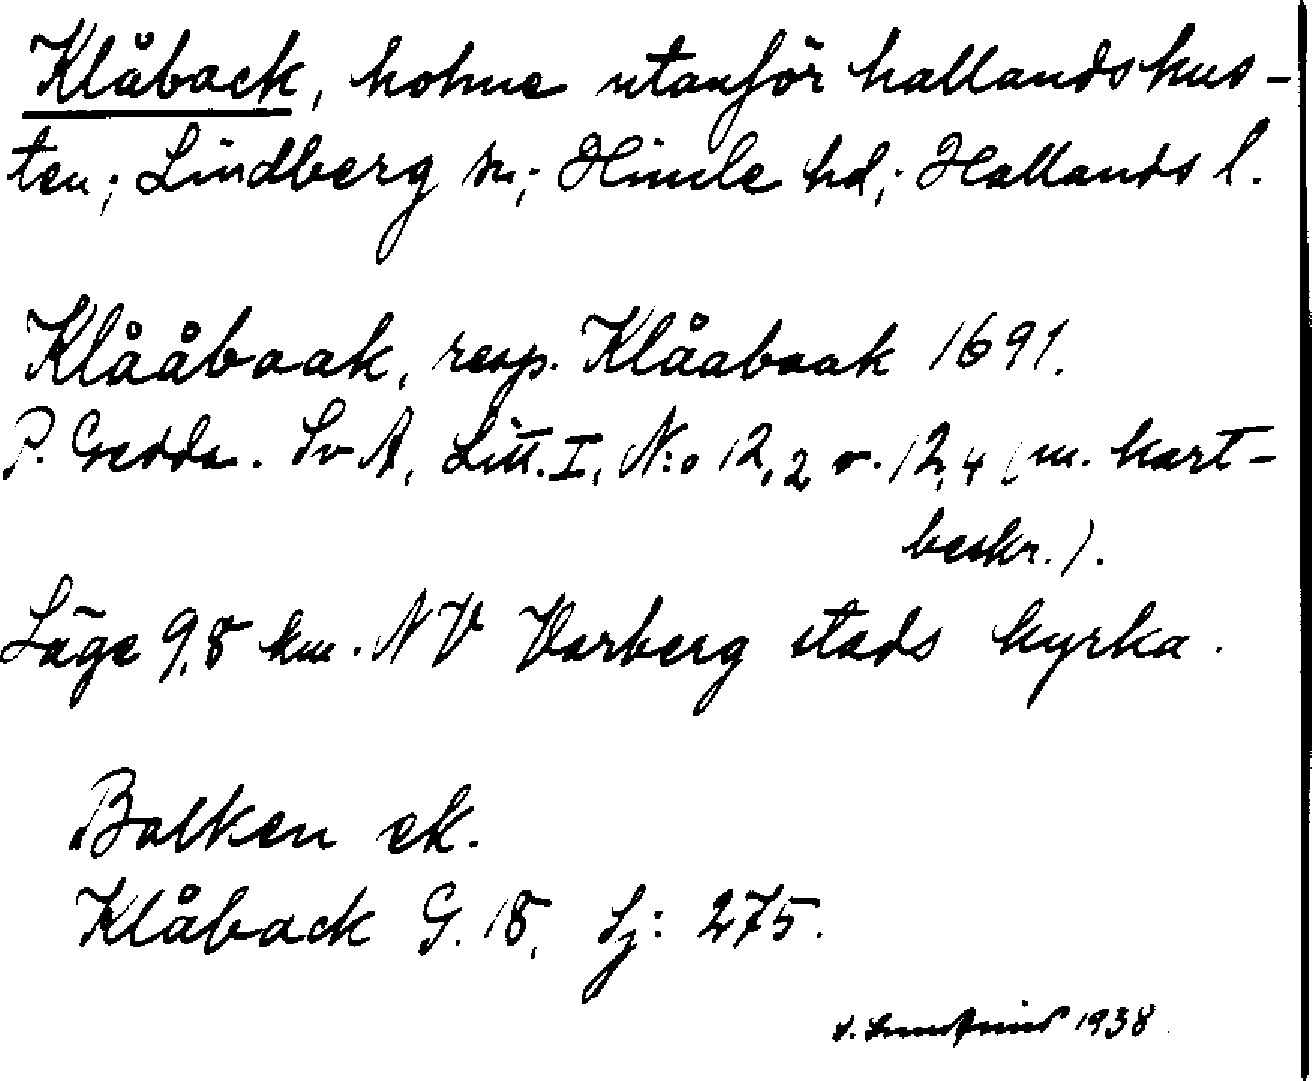 Klåback, holme utanför hallandskus-
ten; Lindberg sn; Himle hd; Hallands l.
Klååbaak, resp. Klåabaak 1691.
P. Gedda. Sv A, Litt. I, N:o 12,2 o. 12,4 (m. kart-
beskr.).
Läge 9,8 km. NV Varberg stads kyrka.
Balken ek.
Klåback G. 18, Sj: 275.
1938